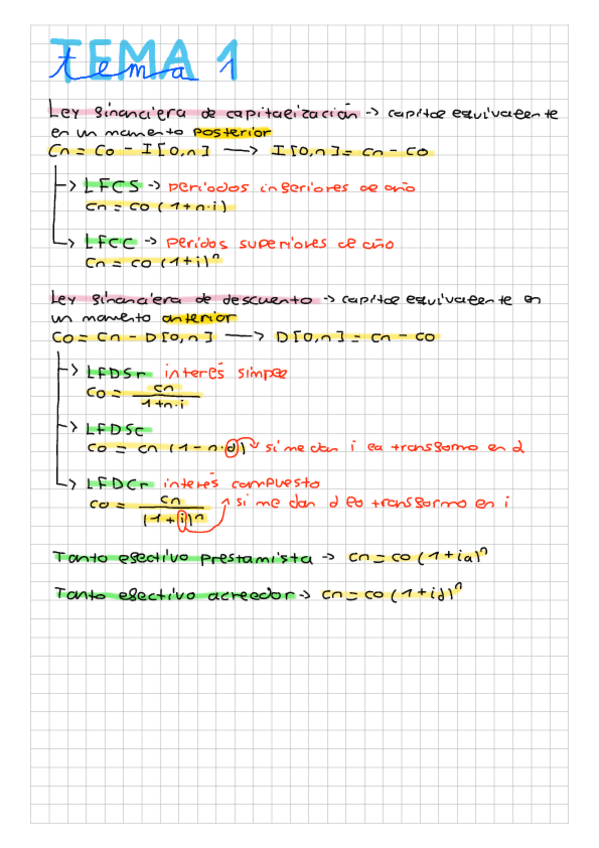 TEMA 1
tema
Ley financiera de capitalización -> capital equivalente
en un momento posterior
Cn = Co - I[0,n] -> I[0,n] = cn - co
-> LFCS -> periodos inferiores de año
cn = co (1+n·i)
-> LFCC -> peridos superiores de año
cn = co (1+i)ⁿ
Ley financiera de descuento -> capital equivalente en
un momento anterior
Co = Cn - D[0,n] -> D[0,n] = cn - co
-> LFDSr interés simple
co = cn / 1+n·i
-> LFDSc
co = cn (1-n·d) -> si me dan i la transformo en d
-> LFDCr interés compuesto
co = cn / (1+i)ⁿ -> si me dan d la transformo en i
Tanto efectivo prestamista -> cn = co (1+ia)ⁿ
Tanto efectivo acreedor -> cn = co (1+id)ⁿ